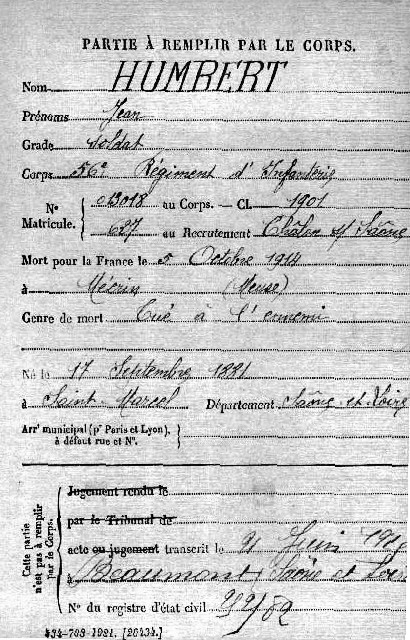 PARTIE À REMPLIR PAR LE CORPS.
Nom HUMBERT
Prénoms Jean
Grade Soldat
Corps 56e Régiment d'Infanterie
N° Matricule. { 013018 au Corps. — Cl. 1901
627 au Recrutement Châlon s/ Saône
Mort pour la France le 5 Octobre 1914
à Mécrin (Meuse)
Genre de mort Tué à l'ennemi
Né le 17 Septembre 1881
à Saint-Marcel Département Saône-et-Loire
Arrt municipal (pr Paris et Lyon), à défaut rue et N°.
Cette partie n'est pas à remplir par le Corps.
Jugement rendu le
par le Tribunal de
acte ou jugement transcrit le 21 Juin
à Beaumont, Saône et
N° du registre d'état civil
534-708-1921. [26434.]